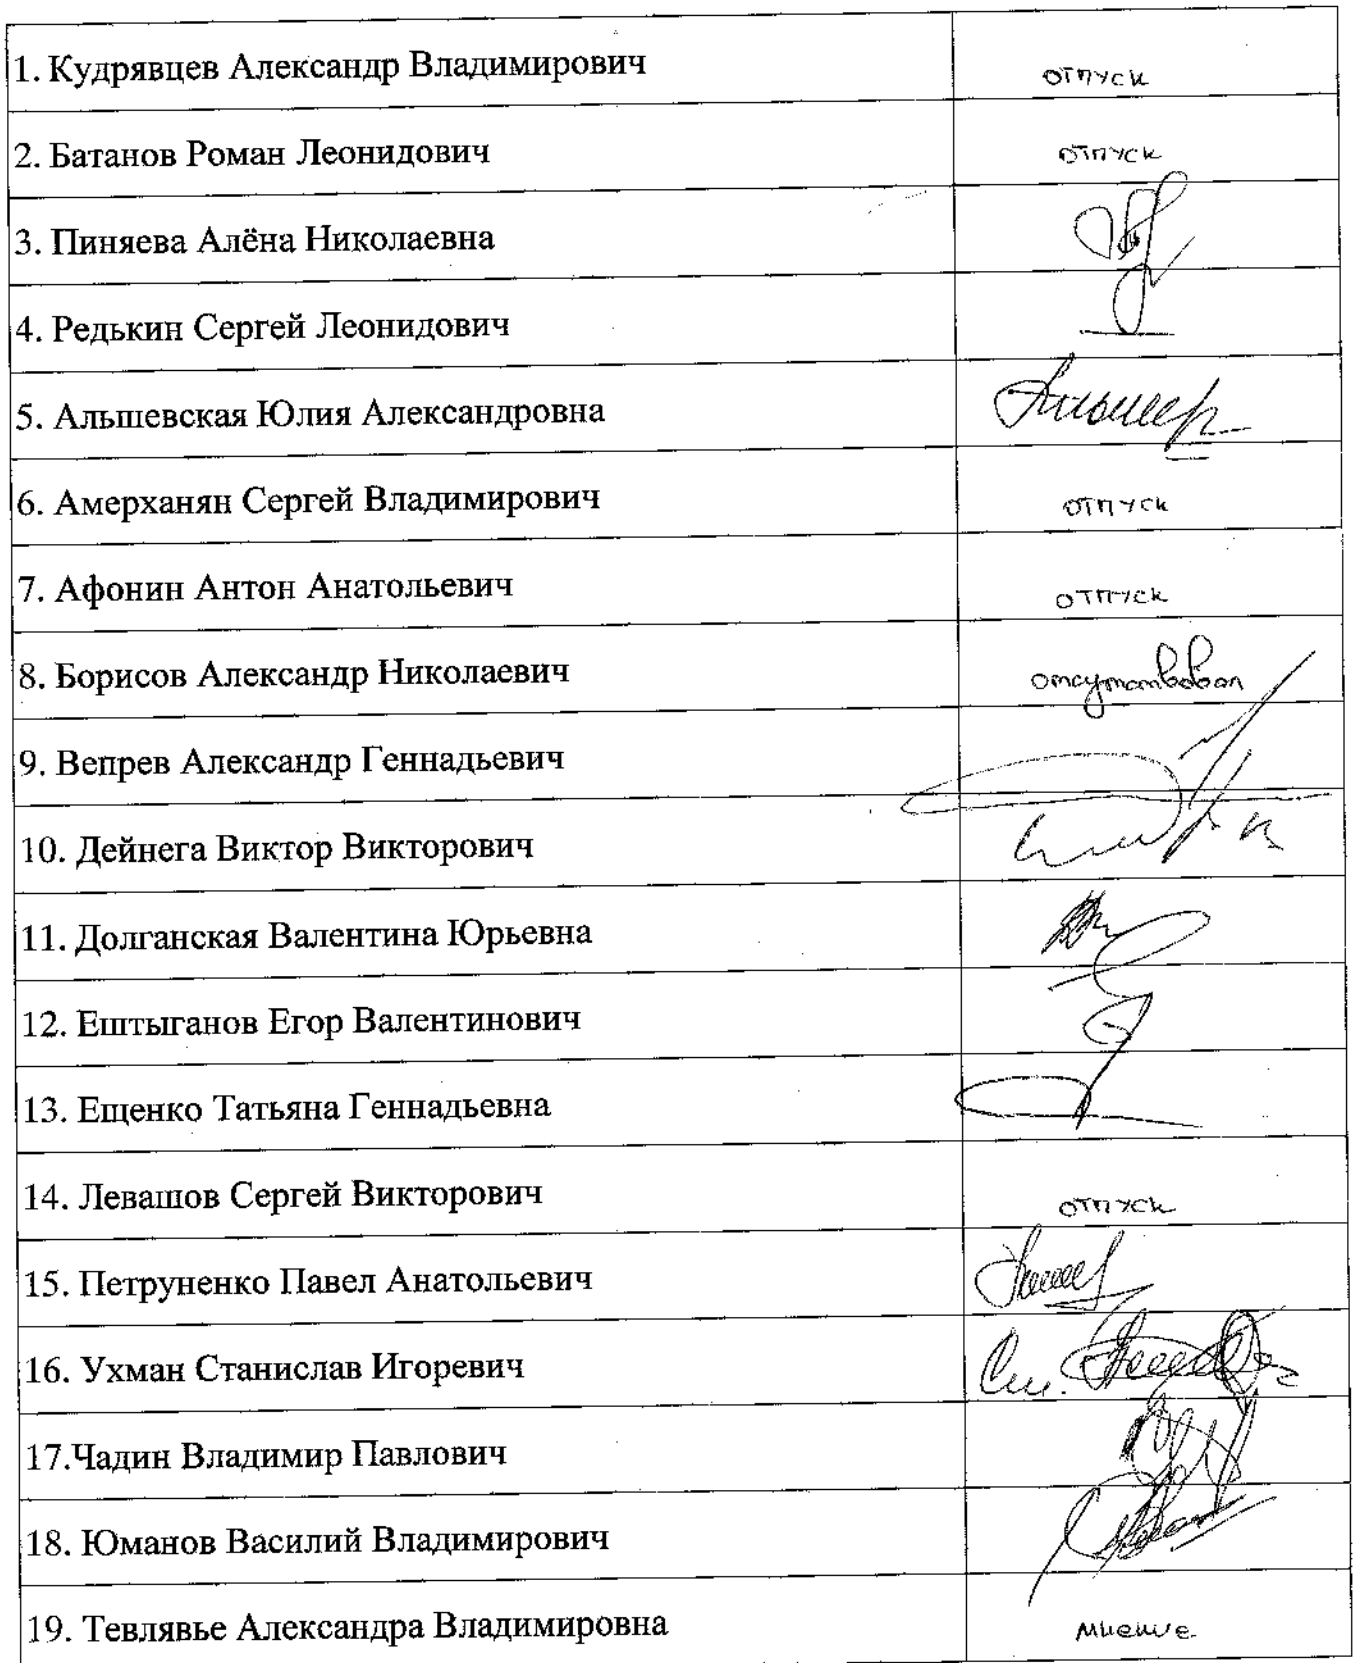 1. Кудрявцев Александр Владимирович отпуск
2. Батанов Роман Леонидович отпуск
3. Пиняева Алёна Николаевна
4. Редькин Сергей Леонидович
5. Альшевская Юлия Александровна
6. Амерханян Сергей Владимирович отпуск
7. Афонин Антон Анатольевич отпуск
8. Борисов Александр Николаевич отсутствовал
9. Вепрев Александр Геннадьевич
10. Дейнега Виктор Викторович
11. Долганская Валентина Юрьевна
12. Ештыганов Егор Валентинович
13. Ещенко Татьяна Геннадьевна
14. Левашов Сергей Викторович отпуск
15. Петруненко Павел Анатольевич
16. Ухман Станислав Игоревич
17.Чадин Владимир Павлович
18. Юманов Василий Владимирович
19. Тевлявье Александра Владимировна мнение